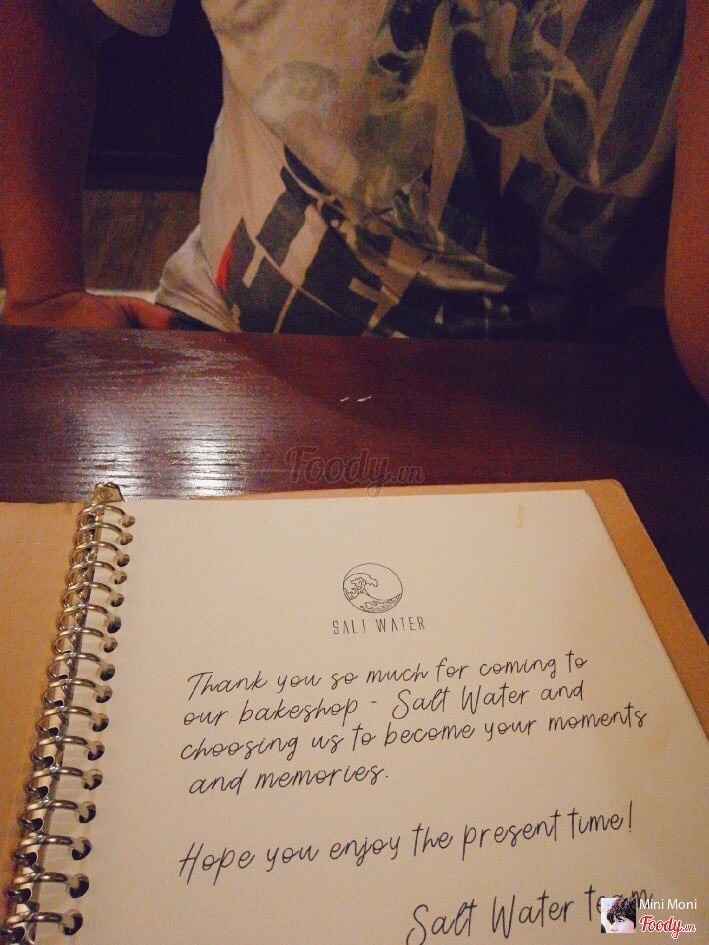 Foody.vn
SALT WATER
Thank you so much for coming to
our bakeshop - Salt Water and
choosing us to become your moments
and memories.
Hope you enjoy the present time!
Salt Water team
Mini Moni
Foody.vn